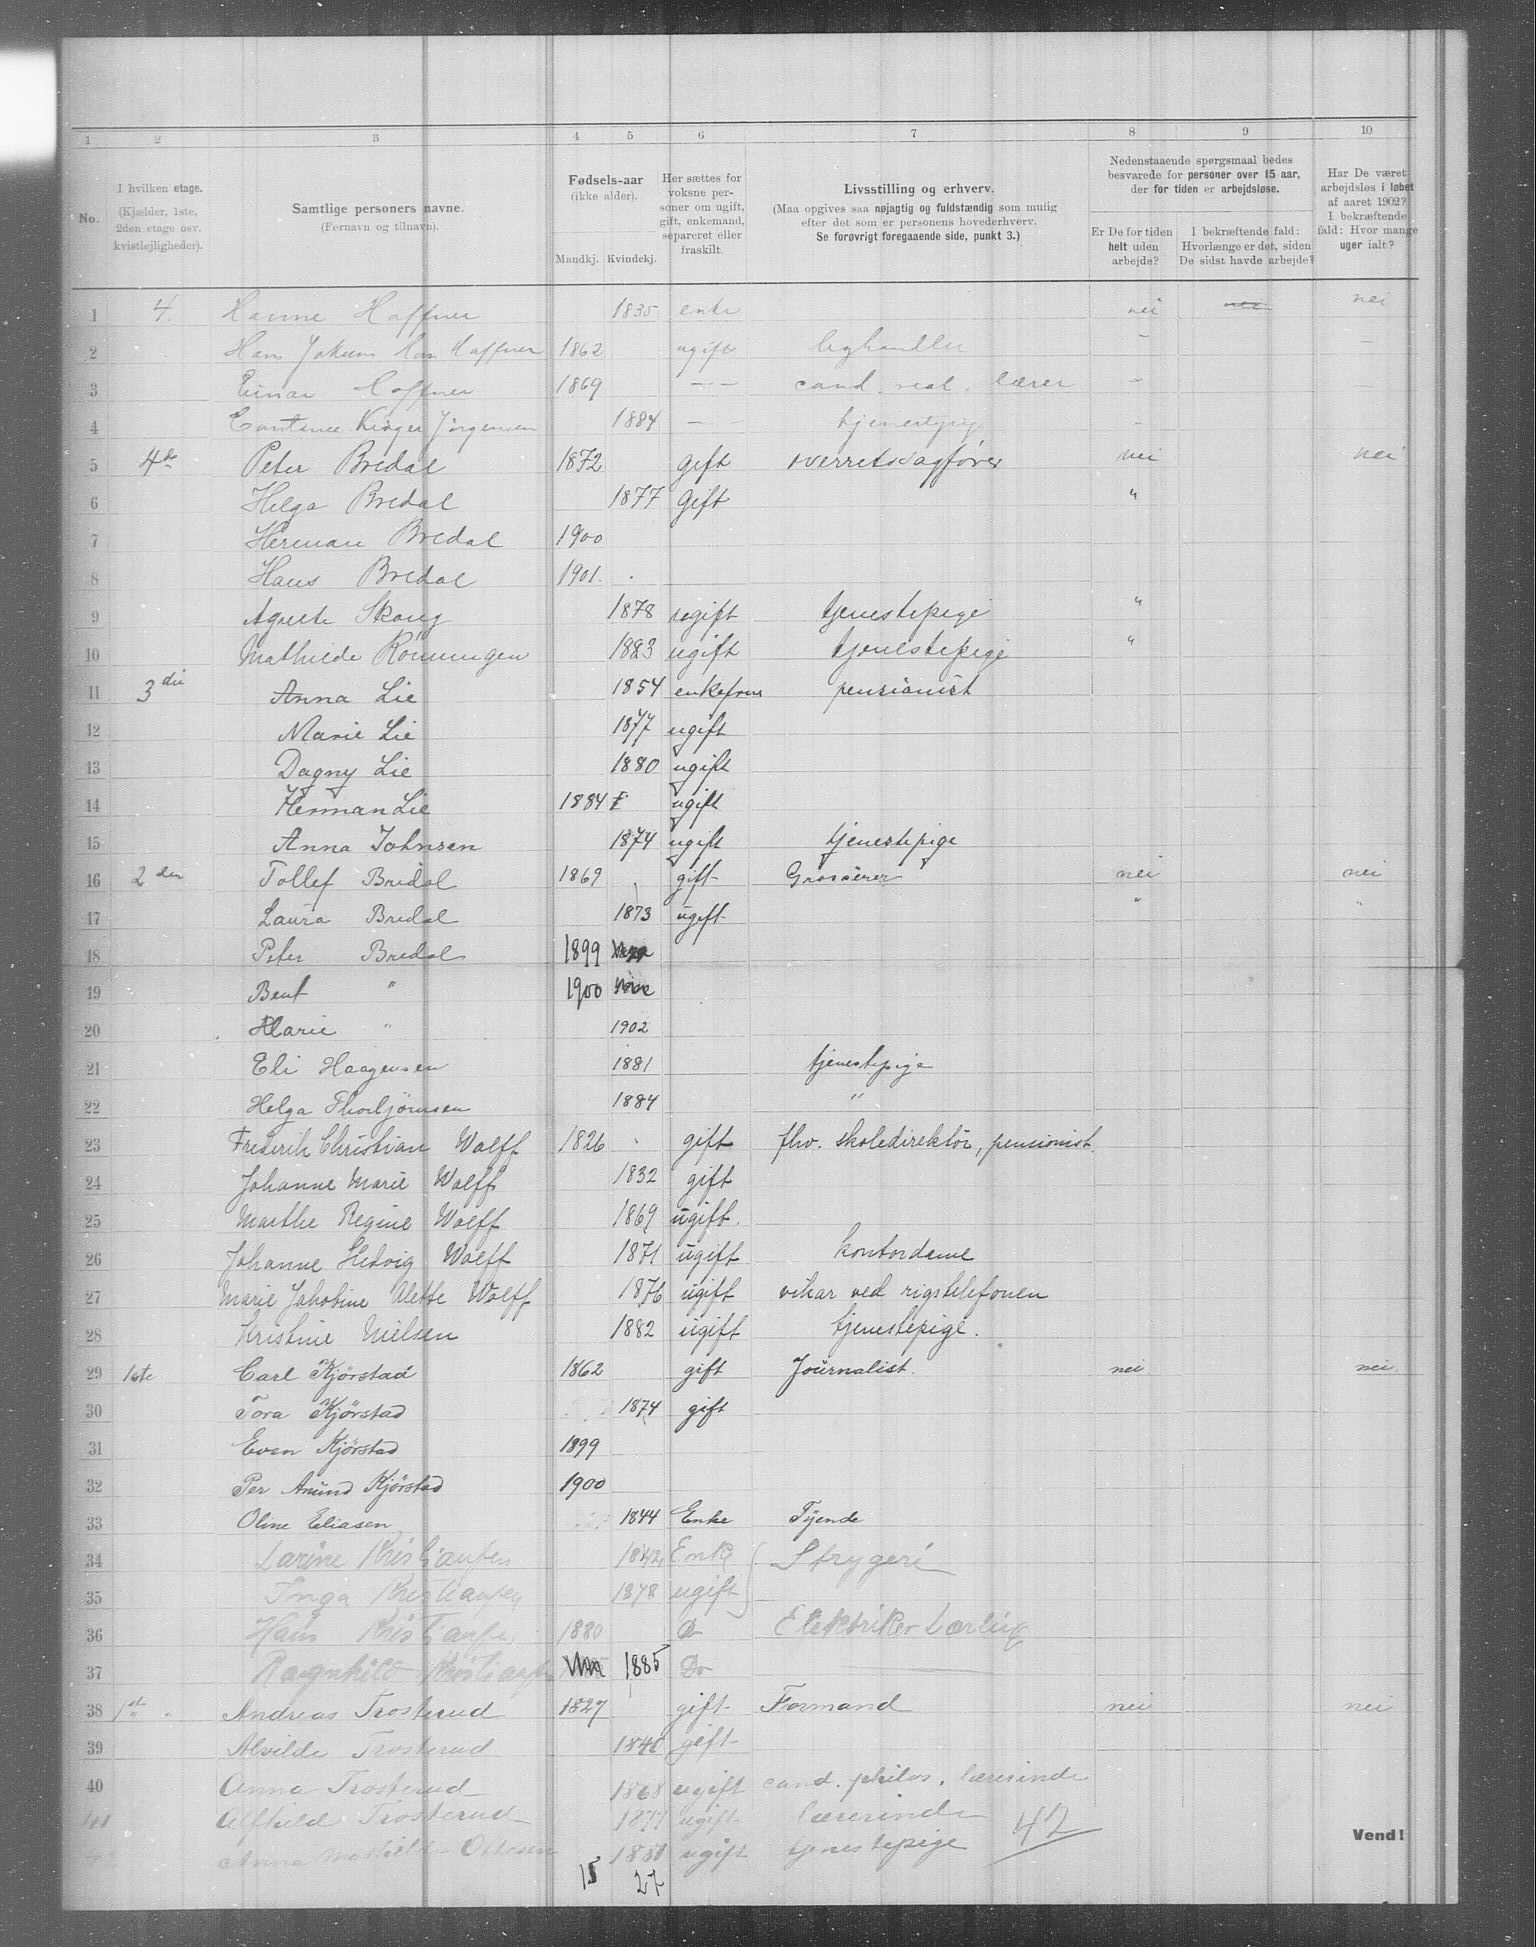 1 2 3 4 5 6 7 8 9 10
No.
I hvilken etage.
(Kjælder, 1ste,
2den etage osv.
kvistlejligheder).
Samtlige personers navne.
(Fernavn og tilnavn).
Fødsels-aar
(ikke alder).
Mandkj. Kvindekj.
Her sættes for
voksne per-
soner om ugift,
gift, enkemand,
separeret eller
fraskilt.
Livsstilling og erhverv.
(Maa opgives saa nøjagtig og fuldstændig som mulig
efter det som er personens hovederhverv.
Se forøvrigt foregaaende side, punkt 3.)
Nedenstaaende spørgsmaal bedes
besvarede for personer over 15 aar,
der for tiden er arbejdsløse.
Er De for tiden
helt uden
arbejde?
I bekræftende fald:
Hvorlænge er det, siden
De sidst havde arbejde?
Har De været
arbejdsløs i løbet
af aaret 1902?
I bekræftende
fald: Hvor mange
uger ialt?
1 4. Hanne Haffner 1835 enke nei nei nei
2 Hans Haffner 1862 ugift -
3 Einar Haffner 1869 -"- cand. real. lærer "
4 Jørgensen 1884 - tjenestpige
5 4de Peter Bredal 1872 gift overretssagfører nei nei
6 Helga Bredal 1877 Gift "
7 Herman Bredal 1900
8 Hans Bredal 1901.
9 Agnete Skaug 1878 ugift tjenestepige "
10 Mathilde Rönningen 1883 ugift tjenestepige "
11 3die Anna Lie 1854 enkefrue pensionist
12 Marie Lie 1877 ugift
13 Dagny Lie 1880 ugift
14 Herman Lie 1884 ugift
15 Anna Johnsen 1874 ugift tjenestepige
16 2den Tollef Bredal 1869 gift Grosserer nei nei
17 Laura Bredal 1873 ugift " "
18 Peter Bredal 1899
19 Bent " 1900
20 Marie " 1902
21 Eli Haagensen 1881 tjenestepige
22 Helga Thorbjörnsen 1884 "
23 Frederik Christian Wolff 1826 gift fhv. skoledirektör, pensionist.
24 Johanne Marie Wolff 1832 gift
25 Marthe Regine Wolff 1869 ugift.
26 Johanne Hedvig Wolff 1871 ugift kontordame
27 Marie Jakobine Alette Wolff 1876 ugift vikar ved rigstelefonen
28 Kristine Nielsen 1882 ugift tjenestepige.
29 1ste Carl Kjörstad 1862 gift Journalist. nei. nei.
30 Tora Kjörstad 1874 gift
31 Even Kjörstad 1899
32 Per Amund Kjörstad 1900
33 Oline Eliasen 1844 Enke Tyende
34 Larine Kristiansen 1842 Enke Strygeri
35 Inga Kristiansen 1878 ugift
36 Hans Kristiansen 1880 Do Elektriker Lærling
37 Ragnhild Kristiansen 1885 Do
38 1st " Andreas Trosterud 1827 gift Formand nei nei
39 Alvilde Trosterud 1840 gift
40 Anna Trosterud 1868 ugift cand. philos. lærerinde
41 Alfhild Trosterud 1877 ugift lærerinde
42 Anna Mathilde Ottesen 1880 ugift tjenestepige 42
Vend!
15 27